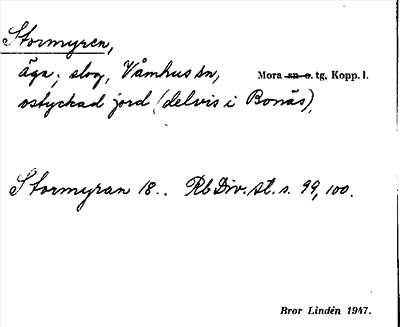 Stormyren,
äga; slog, Våmhus sn, Mora sn o. tg, Kopp. l.
ostyckad jord (delvis i Bonäs),
Stormyran 18.. Rb Div. st. s. 99, 100.
Bror Lindén 1947.